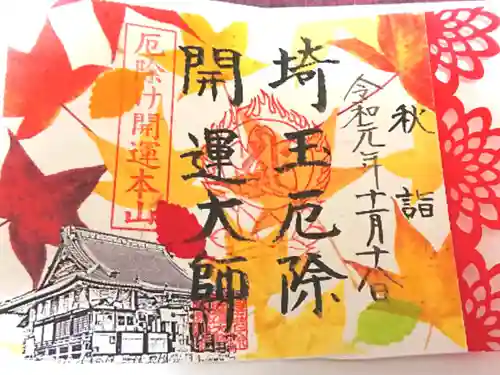 秋詣
令和元年十一月十八日
埼玉厄除
開運大師
厄除け開運本山